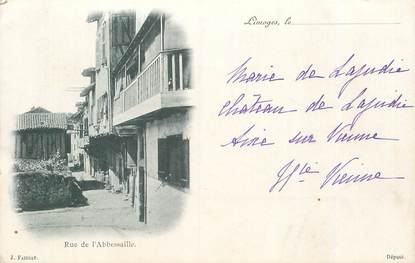 Limoges, le
Marie de Lajudie
Château de Lajudie
Aixe sur Vienne
Hte Vienne
Rue de l'Abbessaille.
J. FAISSAT.
Déposé.